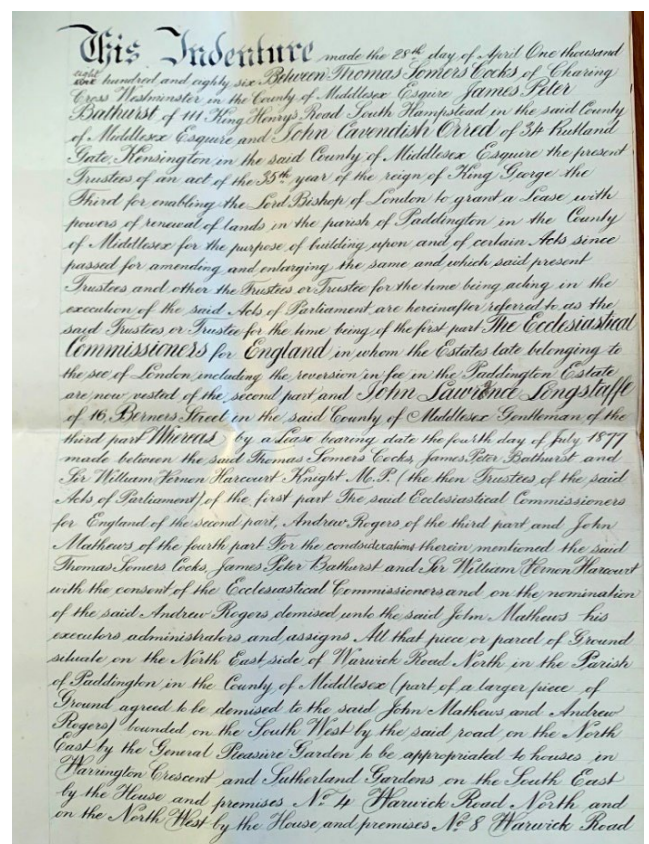 This Indenture made the 28th day of April One thousand
eight hundred and eighty six Between Thomas Somers Cocks of Charing
Cross Westminster in the County of Middlesex Esquire James Peter
Bathurst of 111 King Henrys Road South Hampstead in the said County
of Middlesex Esquire and John Cavendish Orred of 34 Rutland
Gate, Kensington in the said County of Middlesex Esquire the present
Trustees of an act of the 35th year of the reign of King George the
Third for enabling the Lord Bishop of London to grant a Lease with
powers of renewal of lands in the parish of Paddington in the County
of Middlesex for the purpose of building upon and of certain Acts since
passed for amending and enlarging the same and which said present
Trustees and other the Trustees or Trustee for the time being acting in the
execution of the said Acts of Parliament are hereinafter referred to as the
said Trustees or Trustee for the time being of the first part The Ecclesiastical
Commissioners for England in whom the Estates late belonging to
the see of London including the reversion in fee in the Paddington Estate
are now vested of the second part and John Lawrence Longstaffe
of 16, Berners Street in the said County of Middlesex Gentleman of the
third part Whereas by a Lease bearing date the fourth day of July 1877
made between the said Thomas Somers Cocks, James Peter Bathurst and
Sir William Vernon Harcourt Knight M.P. (the then Trustees of the said
Acts of Parliament) of the first part The said Ecclesiastical Commissioners
for England of the second part, Andrew Rogers of the third part and John
Mathews of the fourth part For the considerations therein mentioned the said
Thomas Somers Cocks, James Peter Bathurst and Sir William Vernon Harcourt
with the consent of the Ecclesiastical Commissioners and on the nomination
of the said Andrew Rogers, demised unto the said John Mathews his
executors, administrators, and assigns All that piece or parcel of Ground
situate on the North East side of Warwick Road North in the Parish
of Paddington in the County of Middlesex (part of a larger piece of
Ground agreed to be demised to the said John Mathews and Andrew
Rogers) bounded on the South West by the said road on the North
East by the General Pleasure Garden to be appropriated to houses in
Warrington Crescent and Sutherland Gardens on the South East
by the House and premises No. 4 Warwick Road North and
on the North West by the House and premises No. 8 Warwick Road